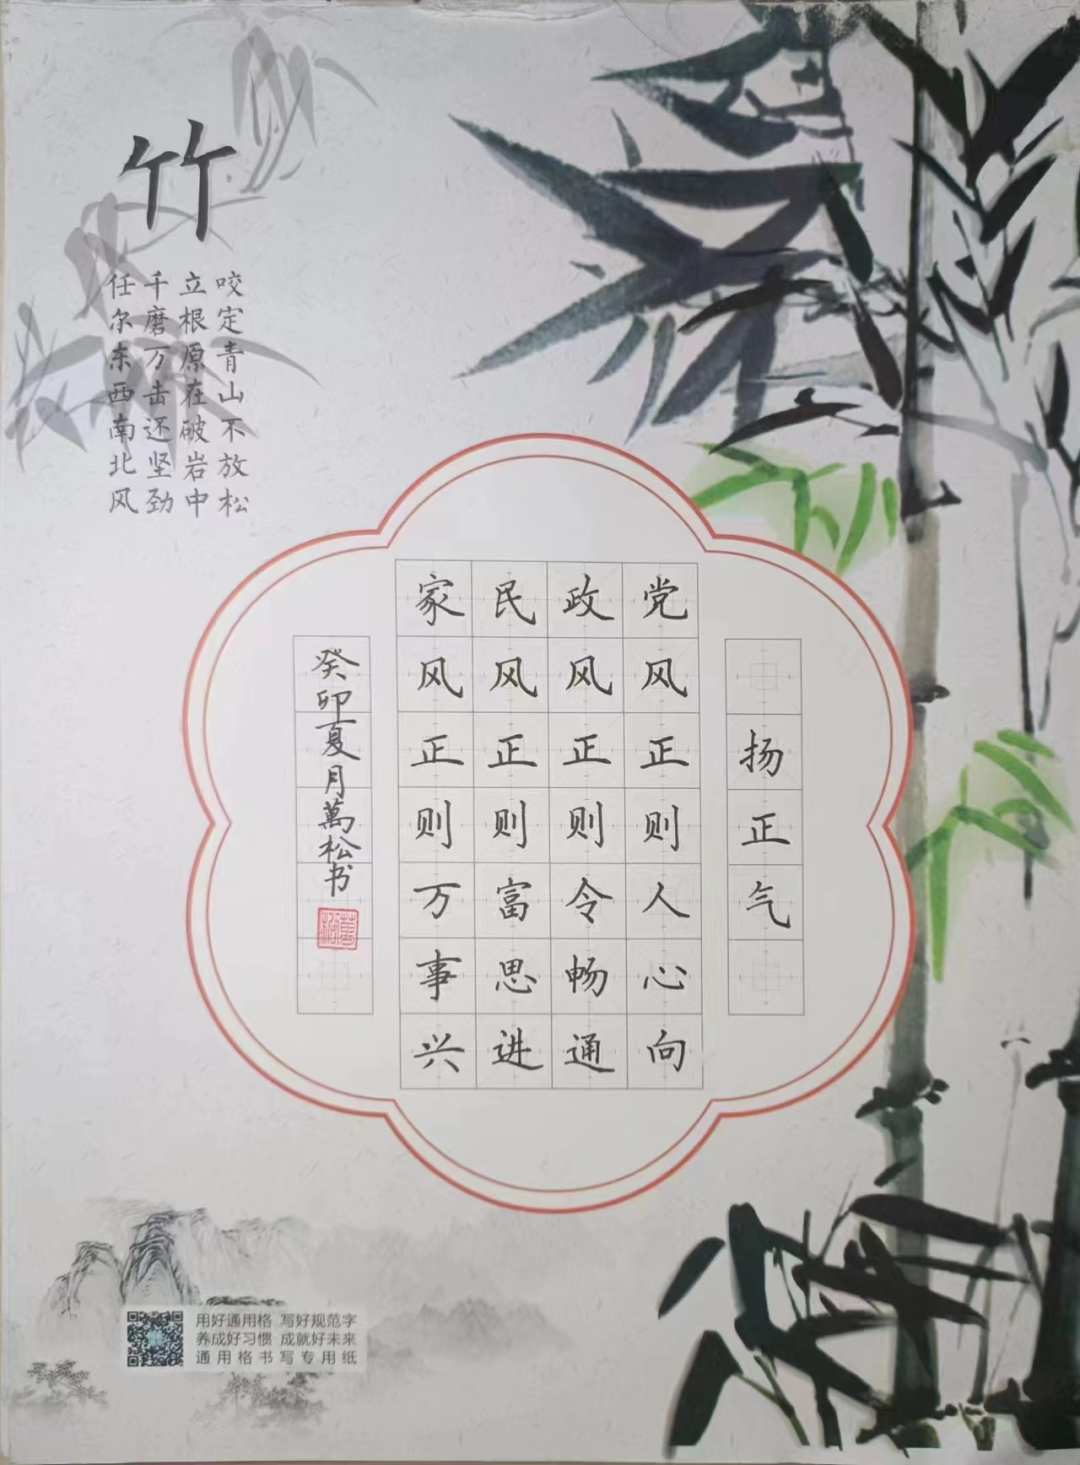 竹
咬定青山不放松
立根原在破岩中
千磨万击还坚劲
任尔东西南北风
扬正气
党风正则人心向
政风正则令畅通
民风正则富思进
家风正则万事兴
癸卯夏月萬松书
萬松
用好通用格 写好规范字
养成好习惯 成就好未来
通用格书写专用纸